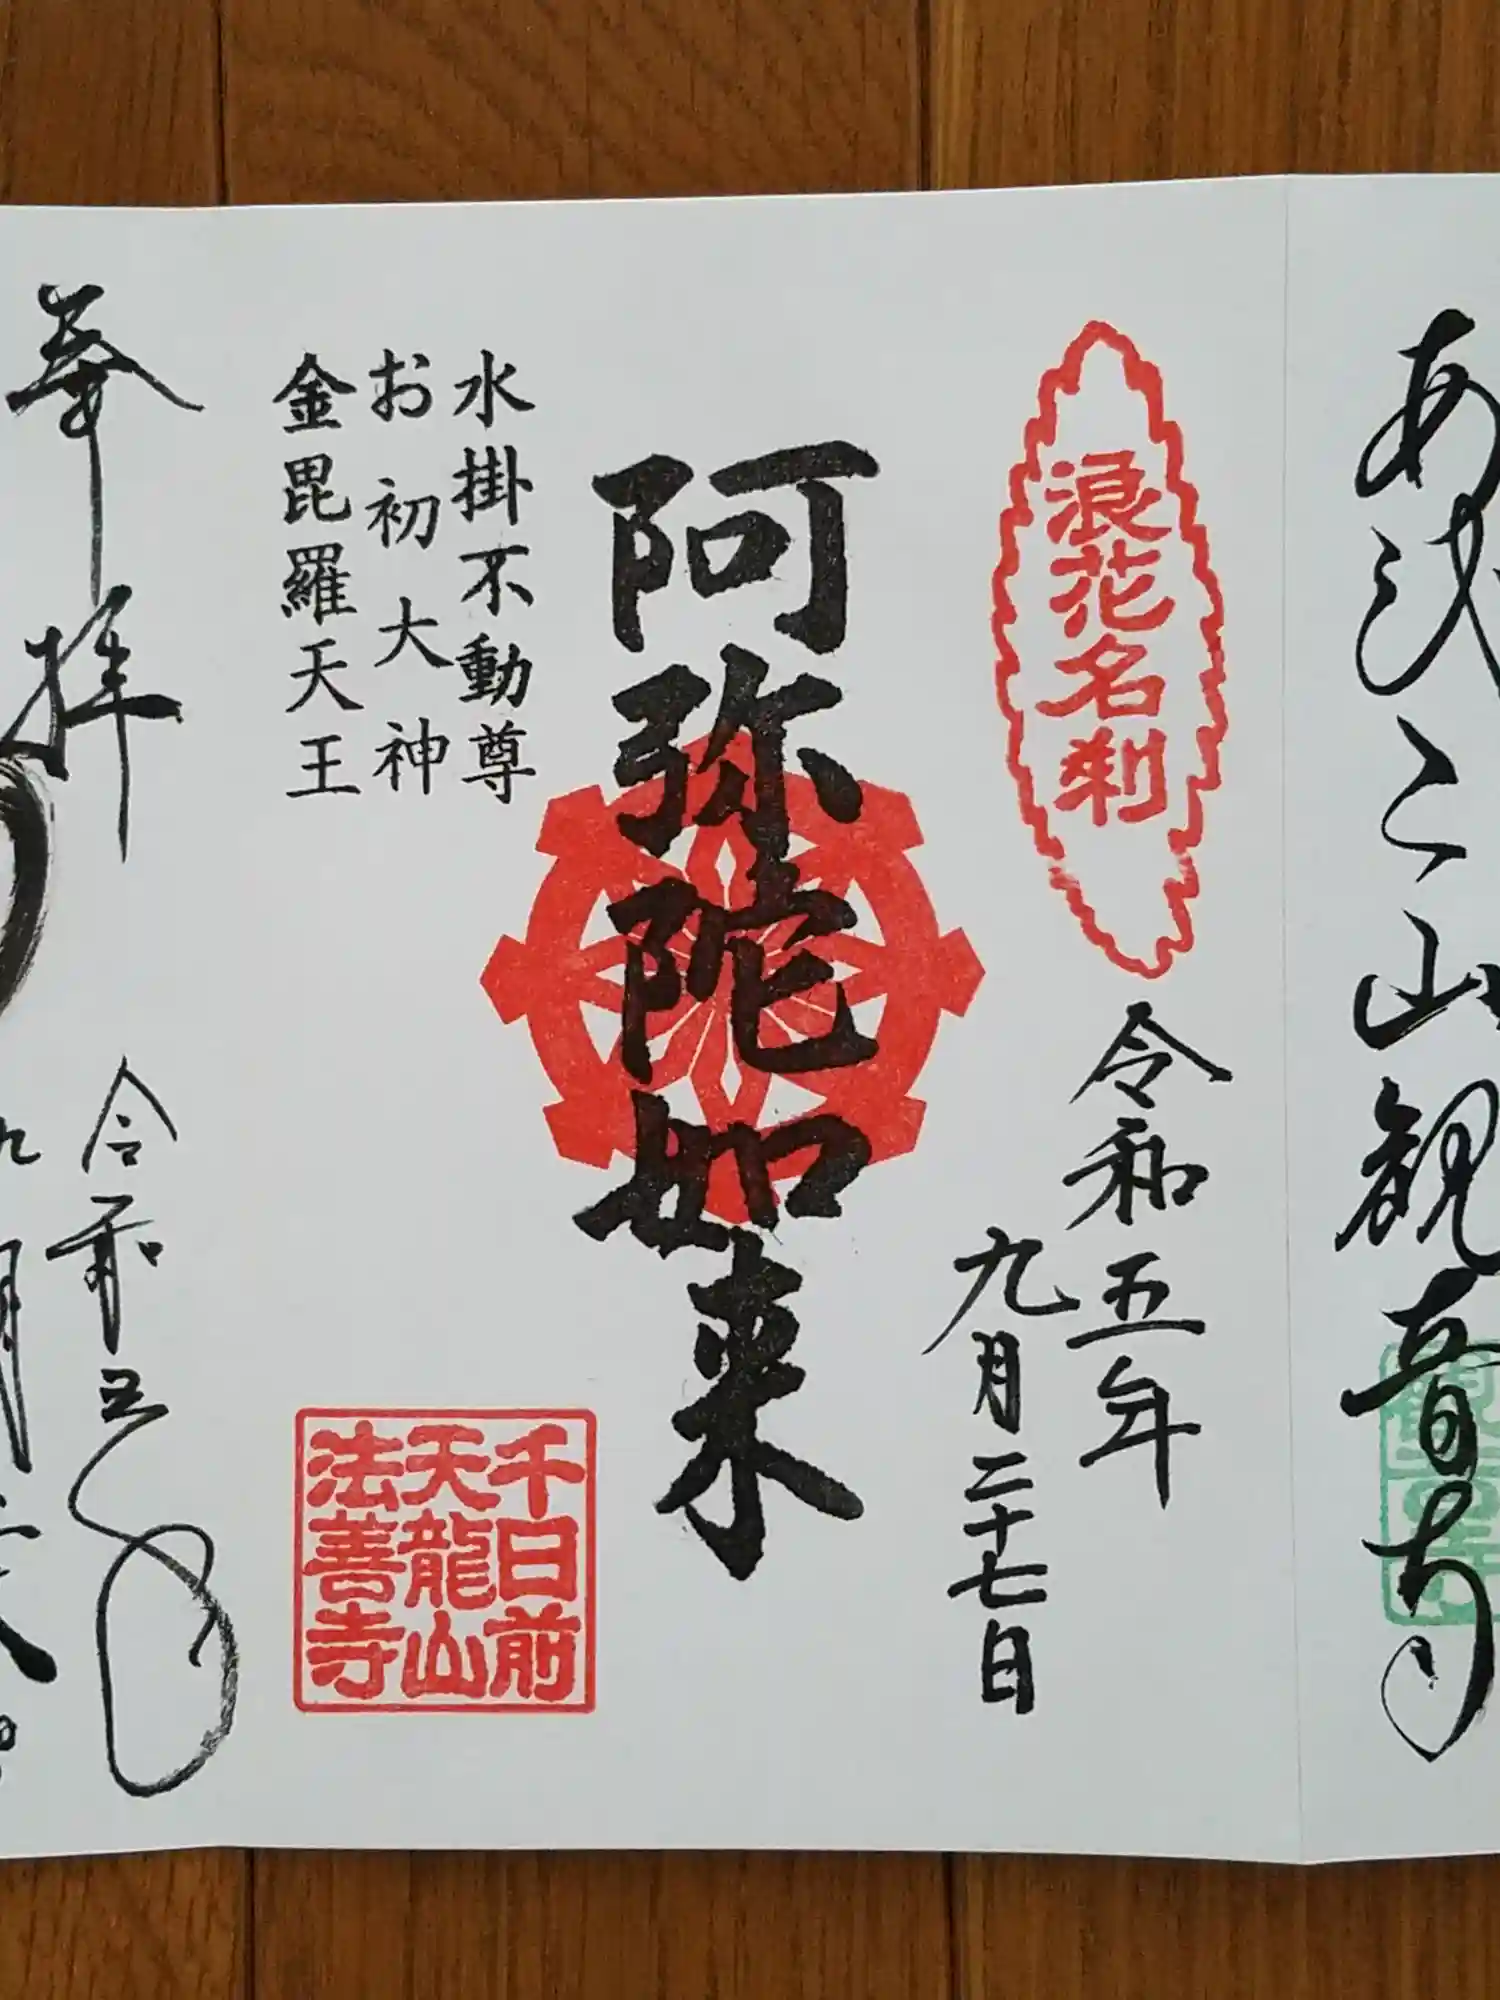 あびこ山観音寺
浪花名刹
令和五年
九月二十七日
阿弥陀如来
水掛不動尊
お初大神
金毘羅天王
千日前
天龍山
法善寺
奉拝
令和五